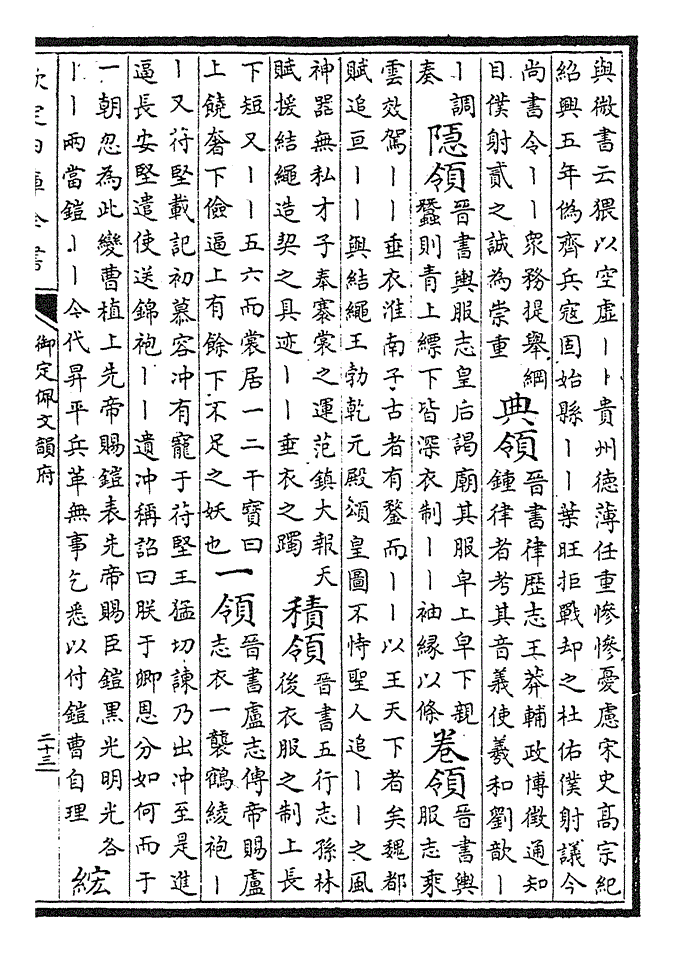 與微書云猥以空虛丨丨貴州徳薄任重慘慘憂慮宋史髙宗紀
紹興五年偽齊兵寇固始縣丨丨葉旺拒戰却之杜佑僕射議今
尚書令丨丨衆務提舉綱
目僕射貳之誠為崇重
典領
晉書律歴志王莽輔政博徵通知
鍾律者考其音義使羲和劉歆丨
丨調
奏
隠領
晉書輿服志皇后謁廟其服皁上皁下親
蠶則青上縹下皆深衣制丨丨袖縁以條
卷領
晉書輿
服志乘
雲效駕丨丨垂衣淮南子古者有鍪而丨丨以王天下者矣魏都
賦追亘丨丨與結繩王勃乾元殿頌皇圖不恃聖人追丨丨之風
神器無私才子奉褰裳之運范鎮大報天
賦援結繩造契之具迹丨丨垂衣之躅
積領
晉書五行志孫林
後衣服之制上長
下短又丨丨五六而裳居一二干寶曰
上饒奢下儉逼上有餘下不足之妖也
一領
晉書盧志傳帝賜盧
志衣一襲鶴綾袍丨
丨又苻堅載記初慕容冲有寵于苻堅王猛切諫乃出冲至是進
逼長安堅遣使送錦袍丨丨遺冲稱詔曰朕于卿恩分如何而于
一朝忽為此變曹植上先帝賜鎧表先帝賜臣鎧黒光明光各
丨丨兩當鎧丨丨今代昇平兵革無事乞悉以付鎧曹自理
綋
欽定四庫全書
御定佩文韻府
二十三